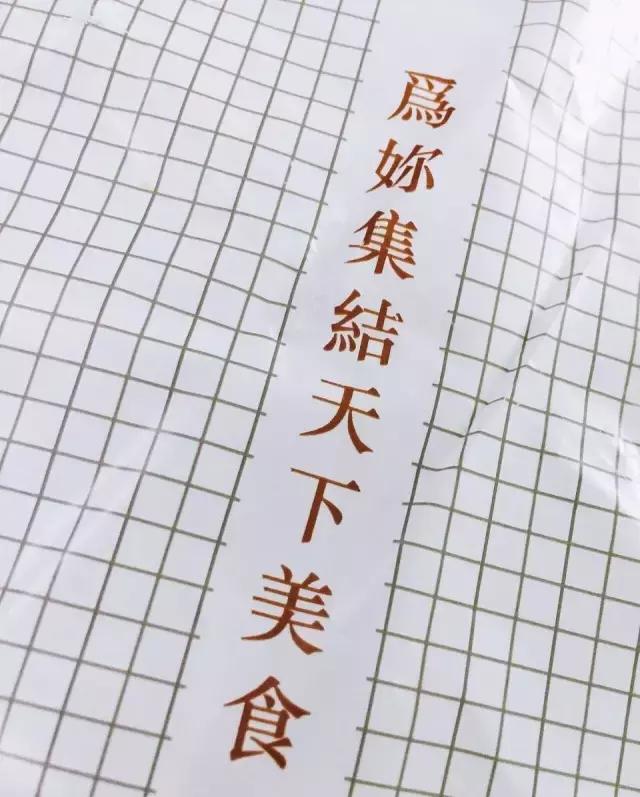 爲妳集結天下美食